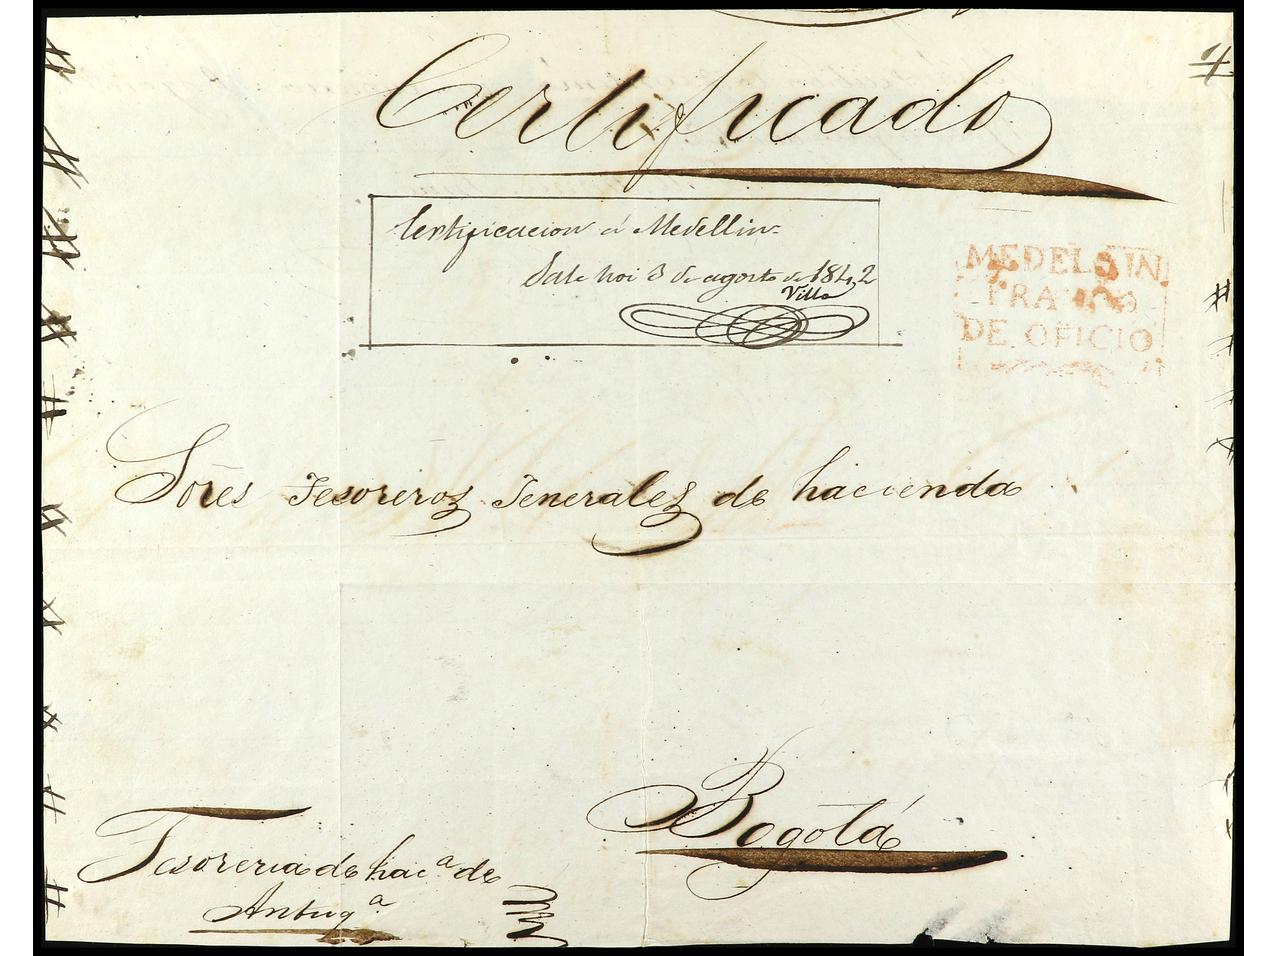 Certificado
Certificacion á Medellin
Sale hoi 3 de agosto de 1842
Villa
MEDELLIN
FRANCO
DE OFICIO
Sōres Tesoreros Jenerales de hacienda
Bogotá
Tesoreria de hac.ª de
Antioq.ª